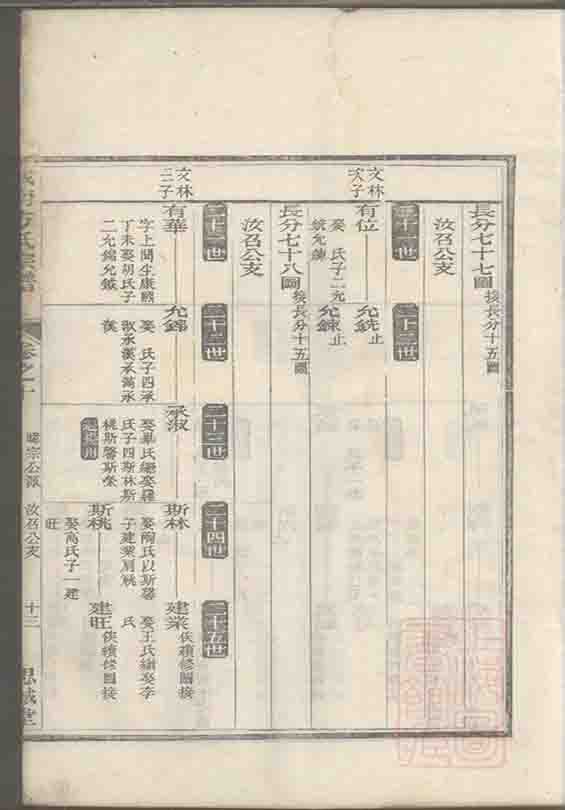 長分七十七圖接長分十五圖
汝召公支
二十一世
二十二世
文林
次子
有位
娶 氏子二允
銑允鍊
允銑止
允鍊止
長分七十八圖接長分十五圖
汝召公支
二十一世
二十二世
二十三世
二十四世
二十五世
文林
三子
有華
字上聞生康熙
丁未娶胡氏子
二允錦允鉞
允錦
娶 氏子四承
淑承漢承滿承
承淑
娶畢氏繼娶羅
氏子四斯林斯
桃斯馨斯榮
斯林
娶陶氏以斯馨
子建業肩祧
斯桃
娶高氏子一建
旺
建業俟續修圖接
娶王氏繼娶李
氏
建旺俟續修圖接
氏宗譜
卷之十
宗公派
汝召公支
十三
思誠堂